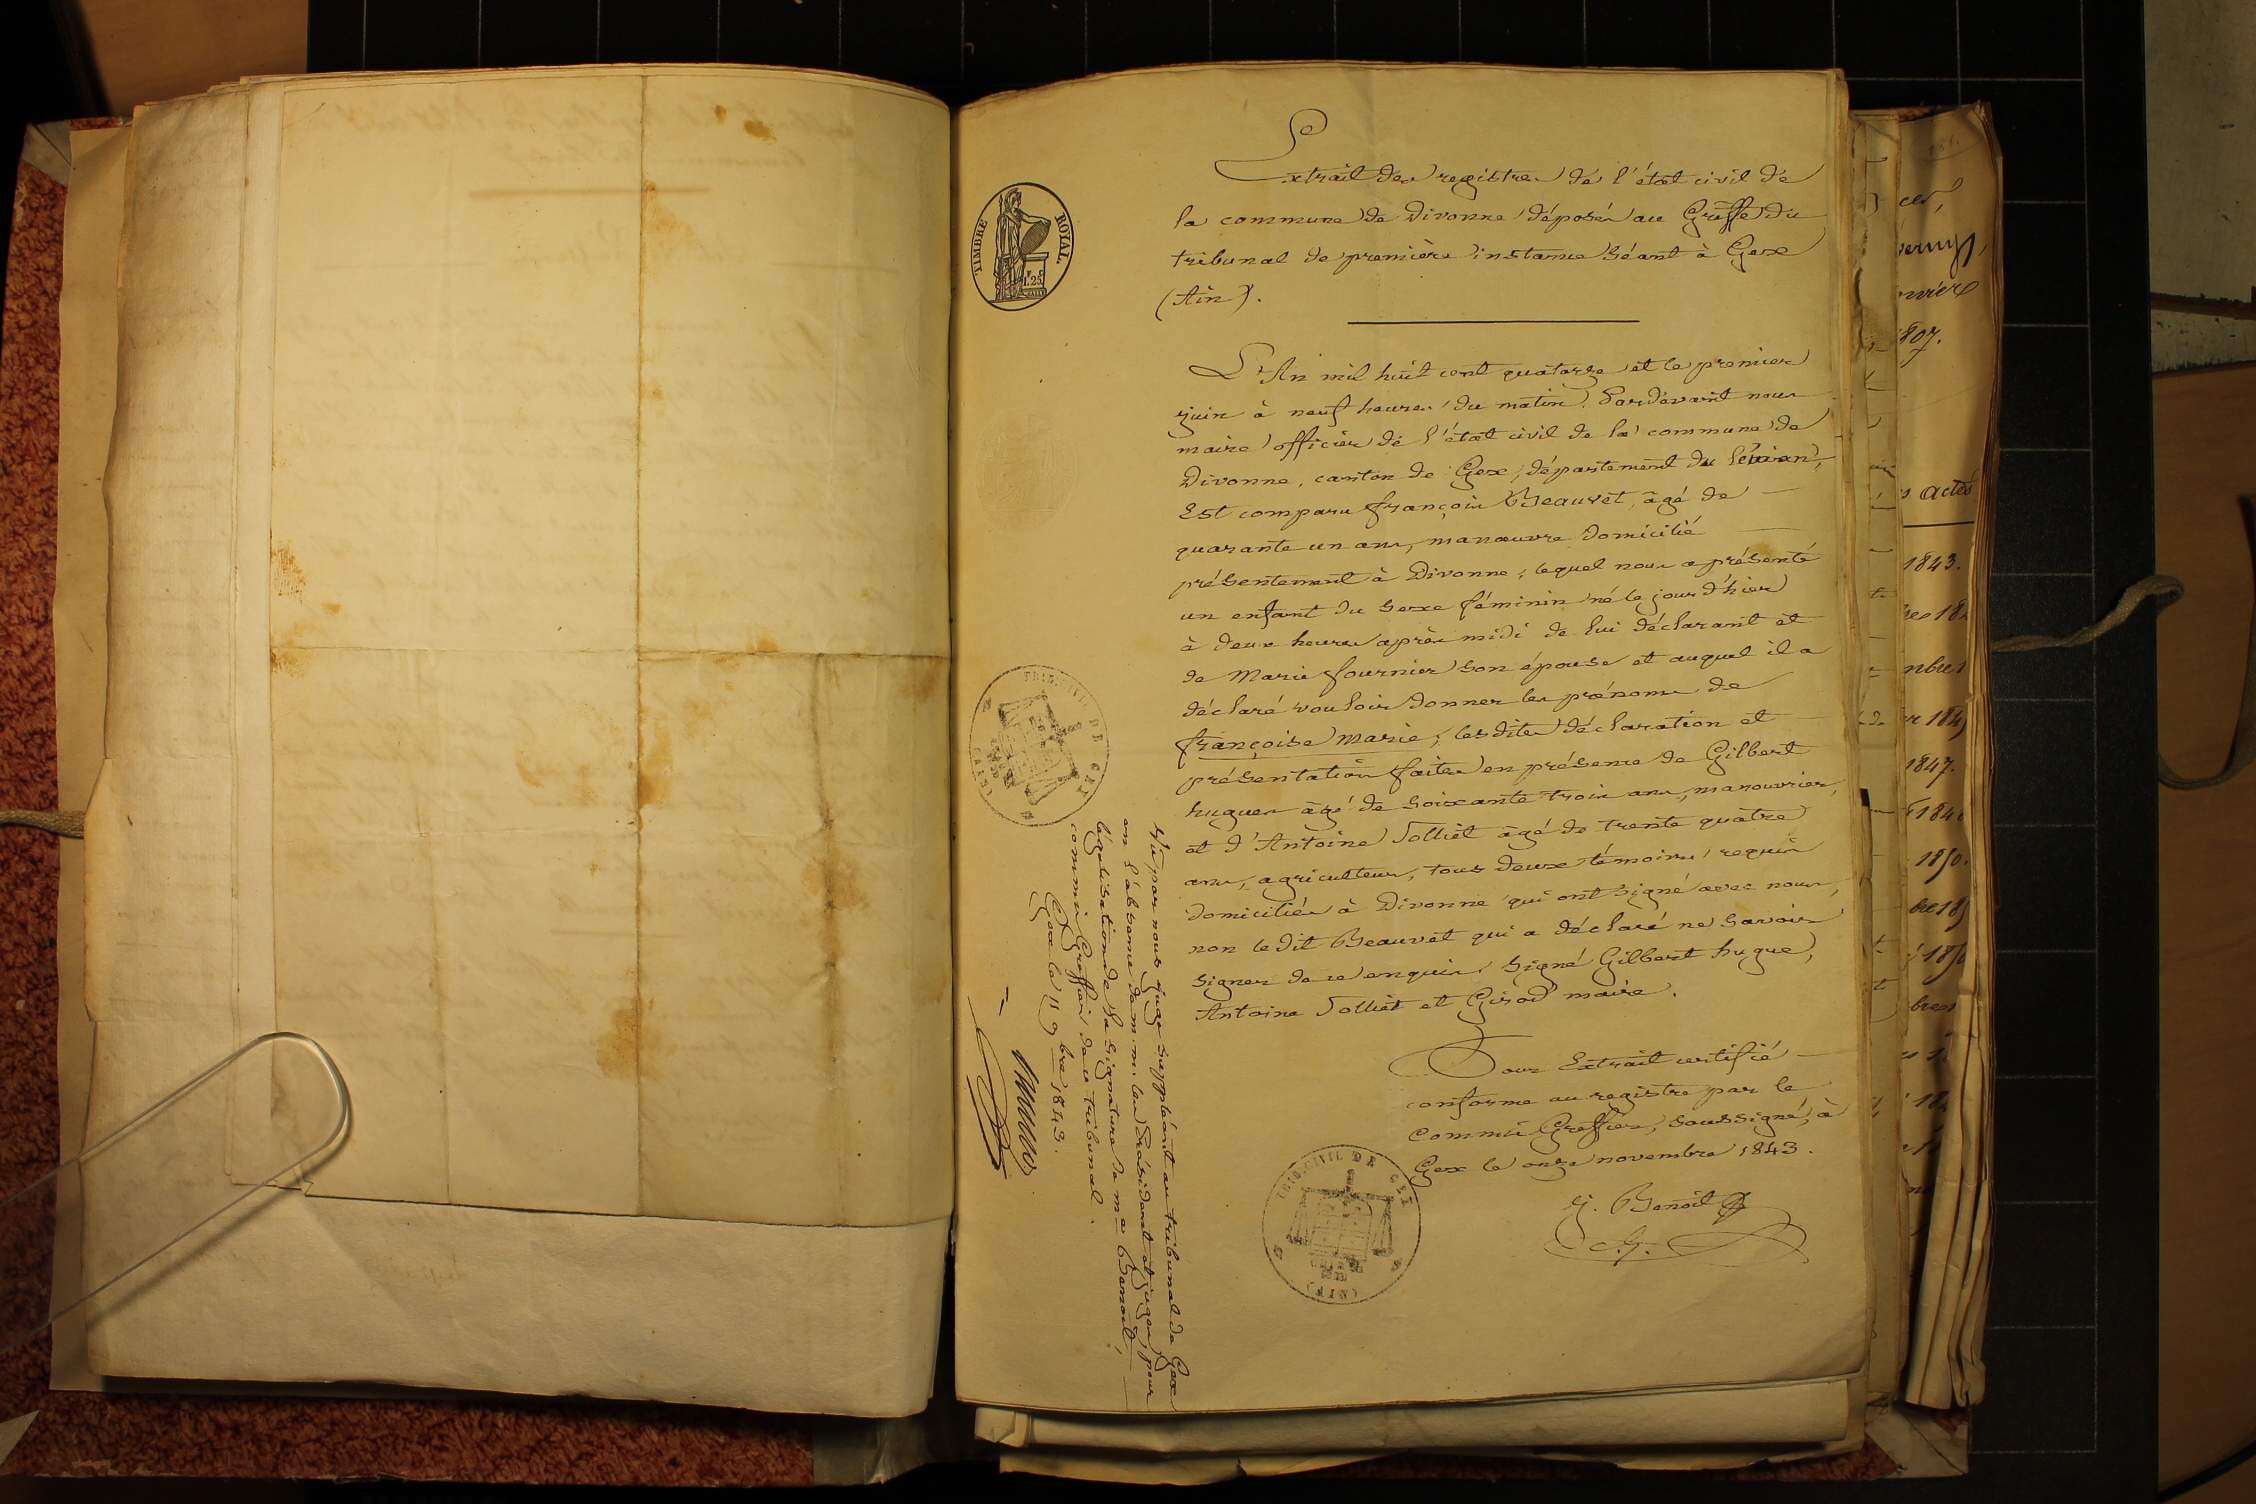 Extrait des registres de l'état civil de
la commune de Divonne déposés au Greffe du
tribunal de première instance séant à Gex
(Ain).
L'An mil huit cent quatorze et le premier
juin à neuf heures du matin. Pardevant nous
maire officier de l'état civil de la commune de
Divonne, canton de Gex, département du Léman,
Est comparu françois Beauvet, âgé de
quarante un ans, manœuvre domicilié
présentement à Divonne, lequel nous a présenté
un enfant du sexe féminin né le jour d'hier
à deux heures après midi de lui déclarant et
de Marie fournier son épouse et auquel il a
déclaré vouloir donner les prénoms de
françoise Marie, les dites déclaration et
présentation faites en présence de Gilbert
hugues âgé de soixante trois ans, manouvrier,
et d'Antoine Jolliet âgé de trente quatre
ans, agriculteur, tous deux témoins requis
domiciliés à Divonne qui ont signé avec nous,
non le dit Beauvet qui a déclaré ne savoir
signer de ce enquis. Signé Gilbert hugue,
Antoine Jolliet et Girod maire.
Pour Extrait certifié
conforme au registre par le
Commis Greffier, soussigné, à
Gex le onze novembre 1843.
j. Benoit
C. G.
TIMBRE ROYAL
1.25
TRIB. CIVIL DE GEX
(AIN)
Vu par nous juge suppléant au tribunal de Gex
en l'absence de m.m. les Président et juges, pour
légalisation de la signature de me Benoit,
commis Greffier du tribunal.
Gex le 11 9bre 1843.
TRIB. CIVIL DE GEX
(AIN)
1807.
actes
1843.
1847.
1850.